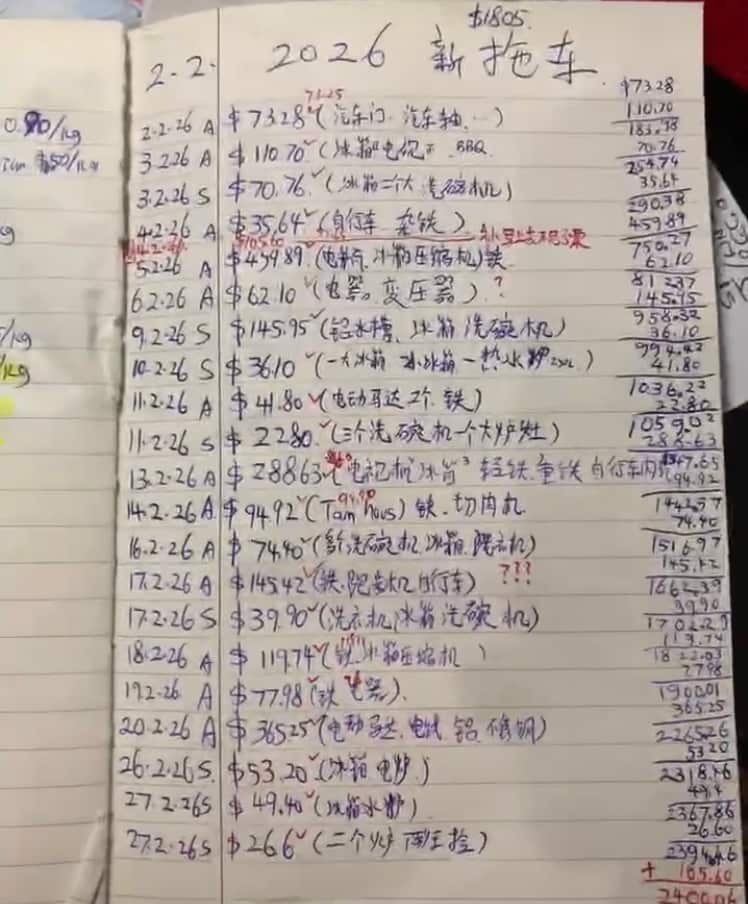 $1805.
2.2. 2026 新拖车
0.90/kg
2.2.26 A $73.28 (汽车门. 汽车轴. …)
73.25
3.2.26 A $110.70 (冰箱 BBQ
3.2.26 S $70.76 (冰箱二个大 洗碗机)
4.2.26 A $35.64 (自行车 杂铁)
$105.60
5.2.26 A $459.89 (冰箱压缩机) 铁
6.2.26 A $62.10 (电器, 变压器) ?
9.2.26 S $145.95 (铝水槽, 冰箱 洗碗机)
10.2.26 S $36.10 (一大冰箱 小冰箱 一热水炉
11.2.26 A $41.80 (电动马达2个 铁)
11.2.26 S $22.80 (三个洗碗机一个大炉灶)
13.2.26 A $288.63 电视机 冰箱3 轻铁. 重铁 自行车内
14.2.26 A $94.92 (铁. 切肉机
16.2.26 A $74.40 (洗碗机, 冰箱, 跑步机)
17.2.26 A $145.42 (铁. 跑步机 自行车) ???
17.2.26 S $39.90 (洗衣机 冰箱 洗碗机)
18.2.26 A $119.74 (铁 冰箱压缩机)
19.2.26 A $77.98 (铁 电器).
20.2.26 A $365.25 (电动马达. 电线 铝. 不锈钢)
26.2.26 S. $53.20 (冰箱 电炉.)
27.2.26 S $49.40 (冰箱 水炉)
27.2.26 S $26.6 (二个炉
$73.28
110.70
183.98
70.76
254.74
35.64
290.38
459.89
750.27
62.10
812.37
145.95
958.32
36.10
994.42
41.80
1036.22
22.80
1059.02
288.63
1347.65
94.92
1442.57
74.40
1516.97
145.42
1662.39
39.90
1702.29
1822.03
77.98
1900.01
365.25
2265.26
53.20
2318.46
49.4
2367.86
26.60
2394.46
+ 105.60